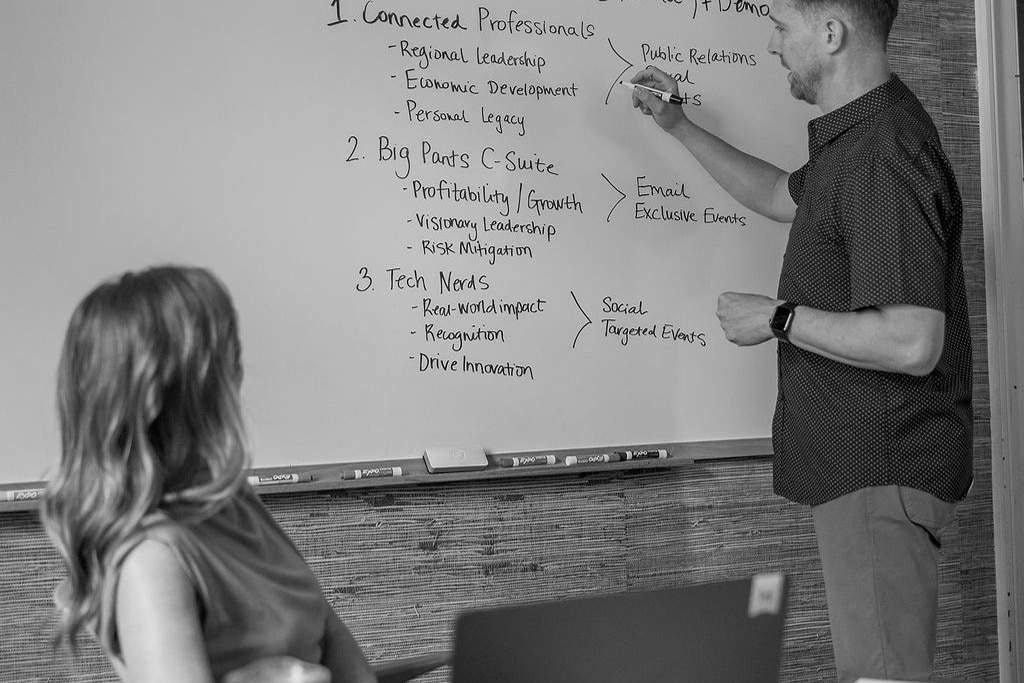 + Demo
1. Connected Professionals
- Regional Leadership
- Economic Development
- Personal Legacy
Public Relations
2. Big Pants C-Suite
- Profitability / Growth
- Visionary Leadership
- Risk Mitigation
Email
Exclusive Events
3. Tech Nerds
- Real-world impact
- Recognition
- Drive Innovation
Social
Targeted Events
EXPO
EXPO
EXPO
EXPO